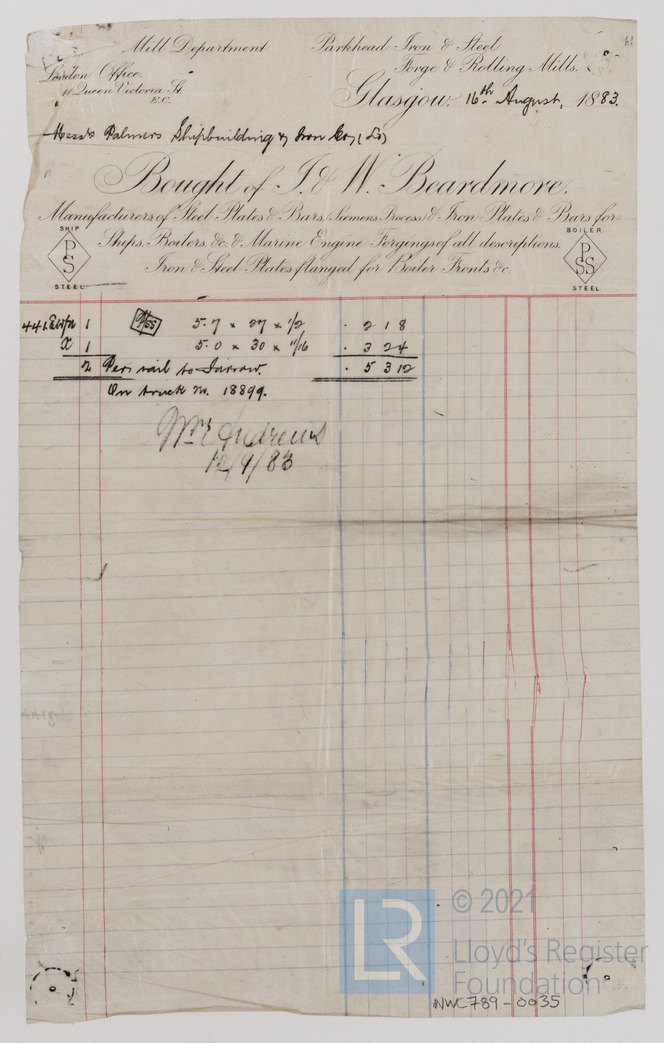 Mill Department. Parkhead Iron & Steel
London Office. Forge & Rolling Mills.
Queen Victoria St
E.C.
Glasgow, 16th August, 1883.
Messrs Palmers Shipbuilding & Iron Coy (Ld)
Bought of J. & W. Beardmore,
Manufacturers of Steel Plates & Bars (Siemens Process) & Iron Plates & Bars for
Ships, Boilers, &c. & Marine Engine Forgings of all descriptions.
Iron & Steel Plates flanged for Boiler Fronts &c.
SHIP
P
S
STEEL
BOILER
P
SS
STEEL
1 P/SS 5.7 x 27 x 1/2 . 2 1 8
X 1 5.0 x 30 x 11/16 . 3 2 4
2 Per rail to Jarrow. . 5 3 12
On truck No. 18899.
Andrews
12/9/83
LR
© 2021
Lloyd's Register
Foundation
NWC789-0035